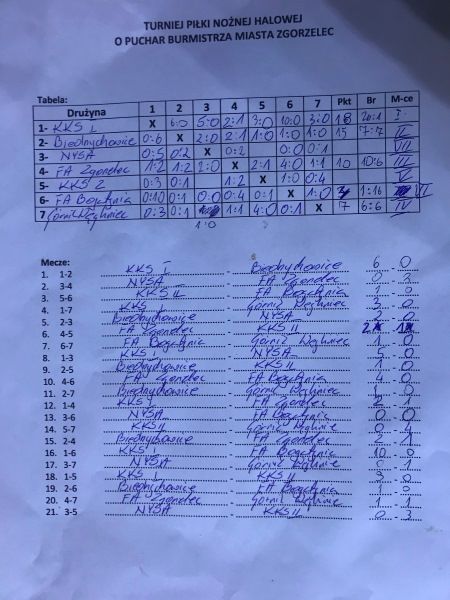 TURNIEJ PIŁKI NOŻNEJ HALOWEJ
O PUCHAR BURMISTRZA MIASTA ZGORZELEC
Tabela:
Drużyna 1 2 3 4 5 6 7 Pkt Br M-ce
1- KKS I X 6:0 5:0 2:1 3:0 10:0 3:0 18 I
2- Biedrzychowice 0:6 X 2:0 2:1 1:0 1:0 1:0 15 7:7 II
3- NYSA 0:5 0:2 X 0:2 0:0 0:1 VII
4- FA Zgorzelec 1:2 1:2 2:0 X 2:1 4:0 1:1 10 10:6 III
5- KKS 2 0:3 0:1 1:2 X 1:0 0:4
6- FA Bogatynia 0:10 0:1 0:0 0:4 0:1 X 1:0 1:16 VI
7 Górnik Węgliniec 0:3 0:1 1:1 4:0 0:1 X 7 6:6 IV
1:0
Mecze:
1. 1-2 KKS I - Biedrzychowice 6 - 0
2. 3-4 NYSA - FA Zgorzelec
3. 5-6 KKS II - FA Bogatynia 1 - 0
4. 1-7 KKS - Górnik Węgliniec 3 - 0
5. 2-3 Biedrzychowice - NYSA 2 - 0
6. 4-5 FA Zgorzelec - KKS II
7. 6-7 FA Bogatynia - Górnik Węgliniec 1 - 0
8. 1-3 KKS I - NYSA 5 - 0
9. 2-5 Biedrzychowice - KKS II 1 - 0
10. 4-6 FA Zgorzelec - FA Bogatynia 4 - 0
11. 2-7 Biedrzychowice - Górnik Węgliniec 1 - 0
12. 1-4 KKS I - FA Zgorzelec
13. 3-6 NYSA - FA Bogatynia 0 - 0
14. 5-7 KKS II - Górnik Węgliniec 0 - 4
15. 2-4 Biedrzychowice - FA Zgorzelec 2 - 1
16. 1-6 KKS I - FA Bogatynia 10 - 0
17. 3-7 NYSA - Górnik Węgliniec 0 - 1
18. 1-5 KKS I - KKS II 3 - 0
19. 2-6 Biedrzychowice - FA Bogatynia 1 - 0
20. 4-7 FA Zgorzelec - Górnik Węgliniec 1 - 1
21. 3-5 NYSA - KKS II 0 - 3